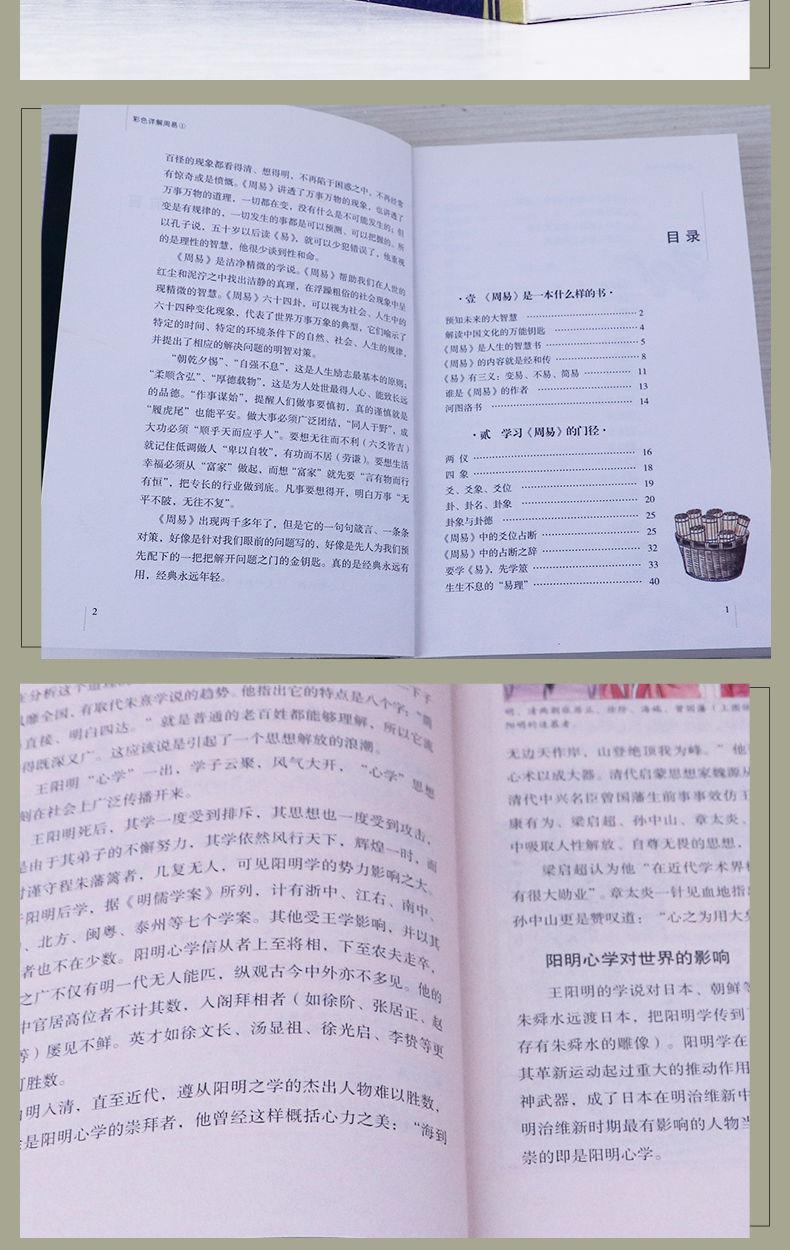 彩色详解周易①
百怪的现象都看得清、想得明,不再陷于困惑之中,不再经常
有惊奇或是愤慨。《周易》讲透了万事万物的现象,也讲透了
万事万物的道理,一切都在变,没有什么是不可能发生的;但
变是有规律的,一切发生的事都是可以预测、可以把握的。所
以孔子说,五十岁以后读《易》,就可以少犯错误了,他重视
的是理性的智慧,他很少谈到性和命。
《周易》是洁净精微的学说。《周易》帮助我们在人世的
红尘和泥泞之中找出洁静的真理,在浮躁粗俗的社会现象中呈
现精微的智慧。《周易》六十四卦,可以视为社会、人生中的
六十四种变化现象,代表了世界万事万象的典型,它们喻示了
特定的时间、特定的环境条件下的自然、社会、人生的规律,
并提出了相应的解决问题的明智对策。
“朝乾夕惕”、“自强不息”,这是人生励志最基本的原则;
“柔顺含弘”、“厚德载物”,这是为人处世最得人心、能致长远
的品德。“作事谋始”,提醒人们做事要慎初,真的谨慎就是
“履虎尾”也能平安。做大事必须广泛团结,“同人于野”,成
大功必须“顺乎天而应乎人”。要想无往而不利(六爻皆吉)
就记住低调做人“卑以自牧”,有功而不居(劳谦)。要想生活
幸福必须从“富家”做起,而想“富家”就先要“言有物而行
有恒”,把专长的行业做到底。凡事要想得开,明白万事“无
平不陂,无往不复”。
《周易》出现两千多年了,但是它的一句句箴言、一条条
对策,好像是针对我们眼前的问题写的,好像是先人为我们预
先配下的一把把解开问题之门的金钥匙。真的是经典永远有
用,经典永远年轻。
2
目录
·壹 《周易》是一本什么样的书·
预知未来的大智慧 2
解读中国文化的万能钥匙 4
《周易》是人生的智慧书 5
《周易》的内容就是经和传 8
《易》有三义:变易、不易、简易 11
谁是《周易》的作者 13
河图洛书 14
·贰 学习《周易》的门径·
两仪 16
四象 18
爻、爻象、爻位 19
卦、卦名、卦象 20
卦象与卦德 25
《周易》中的爻位占断 25
《周易》中的占断之辞 32
要学《易》,先学筮 33
生生不息的“易理” 40
1
风靡全国,有取代朱熹学说的趋势。他指出它的特点是八个字:“简
直接、明白四达。”就是普通的老百姓都能够理解,所以它流
得既深又广。这应该说是引起了一个思想解放的浪潮。
王阳明“心学”一出,学子云聚,风气大开,“心学”思想
刻在社会上广泛传播开来。
王阳明死后,其学一度受到排斥,其思想也一度受到攻击,
是由于其弟子的不懈努力,其学依然风行天下,辉煌一时,而
谨守程朱藩篱者,几复无人,可见阳明学的势力影响之大。
阳明后学,据《明儒学案》所列,计有浙中、江右、南中、
、北方、闽粤、泰州等七个学案。其他受王学影响,并以其
者也不在少数。阳明心学信从者上至将相,下至农夫走卒,
之广不仅有明一代无人能匹,纵观古今中外亦不多见。他的
中官居高位者不计其数,入阁拜相者(如徐阶、张居正、赵
等)屡见不鲜。英才如徐文长、汤显祖、徐光启、李贽等更
可胜数。
明入清,直至近代,遵从阳明之学的杰出人物难以胜数,
是阳明心学的崇拜者,他曾经这样概括心力之美:“海到
明、清两朝张居正、徐阶、海瑞、曾国藩(上图
阳明的追慕者。
无边天作岸,山登绝顶我为峰。”他
心术以成大器。清代启蒙思想家魏源从
清代中兴名臣曾国藩生前事事效仿王
康有为、梁启超、孙中山、章太炎、
中吸取人性解放、自尊无畏的思想,
梁启超认为他“在近代学术界
有很大勋业”。章太炎一针见血地指出
孙中山更是赞叹道:“心之为用大
阳明心学对世界的影响
王阳明的学说对日本、朝鲜等
朱舜水远渡日本,把阳明学传到了
存有朱舜水的雕像)。阳明学在
其革新运动起过重大的推动作用
神武器,成了日本在明治维新中
明治维新时期最有影响的人物当
崇的即是阳明心学。